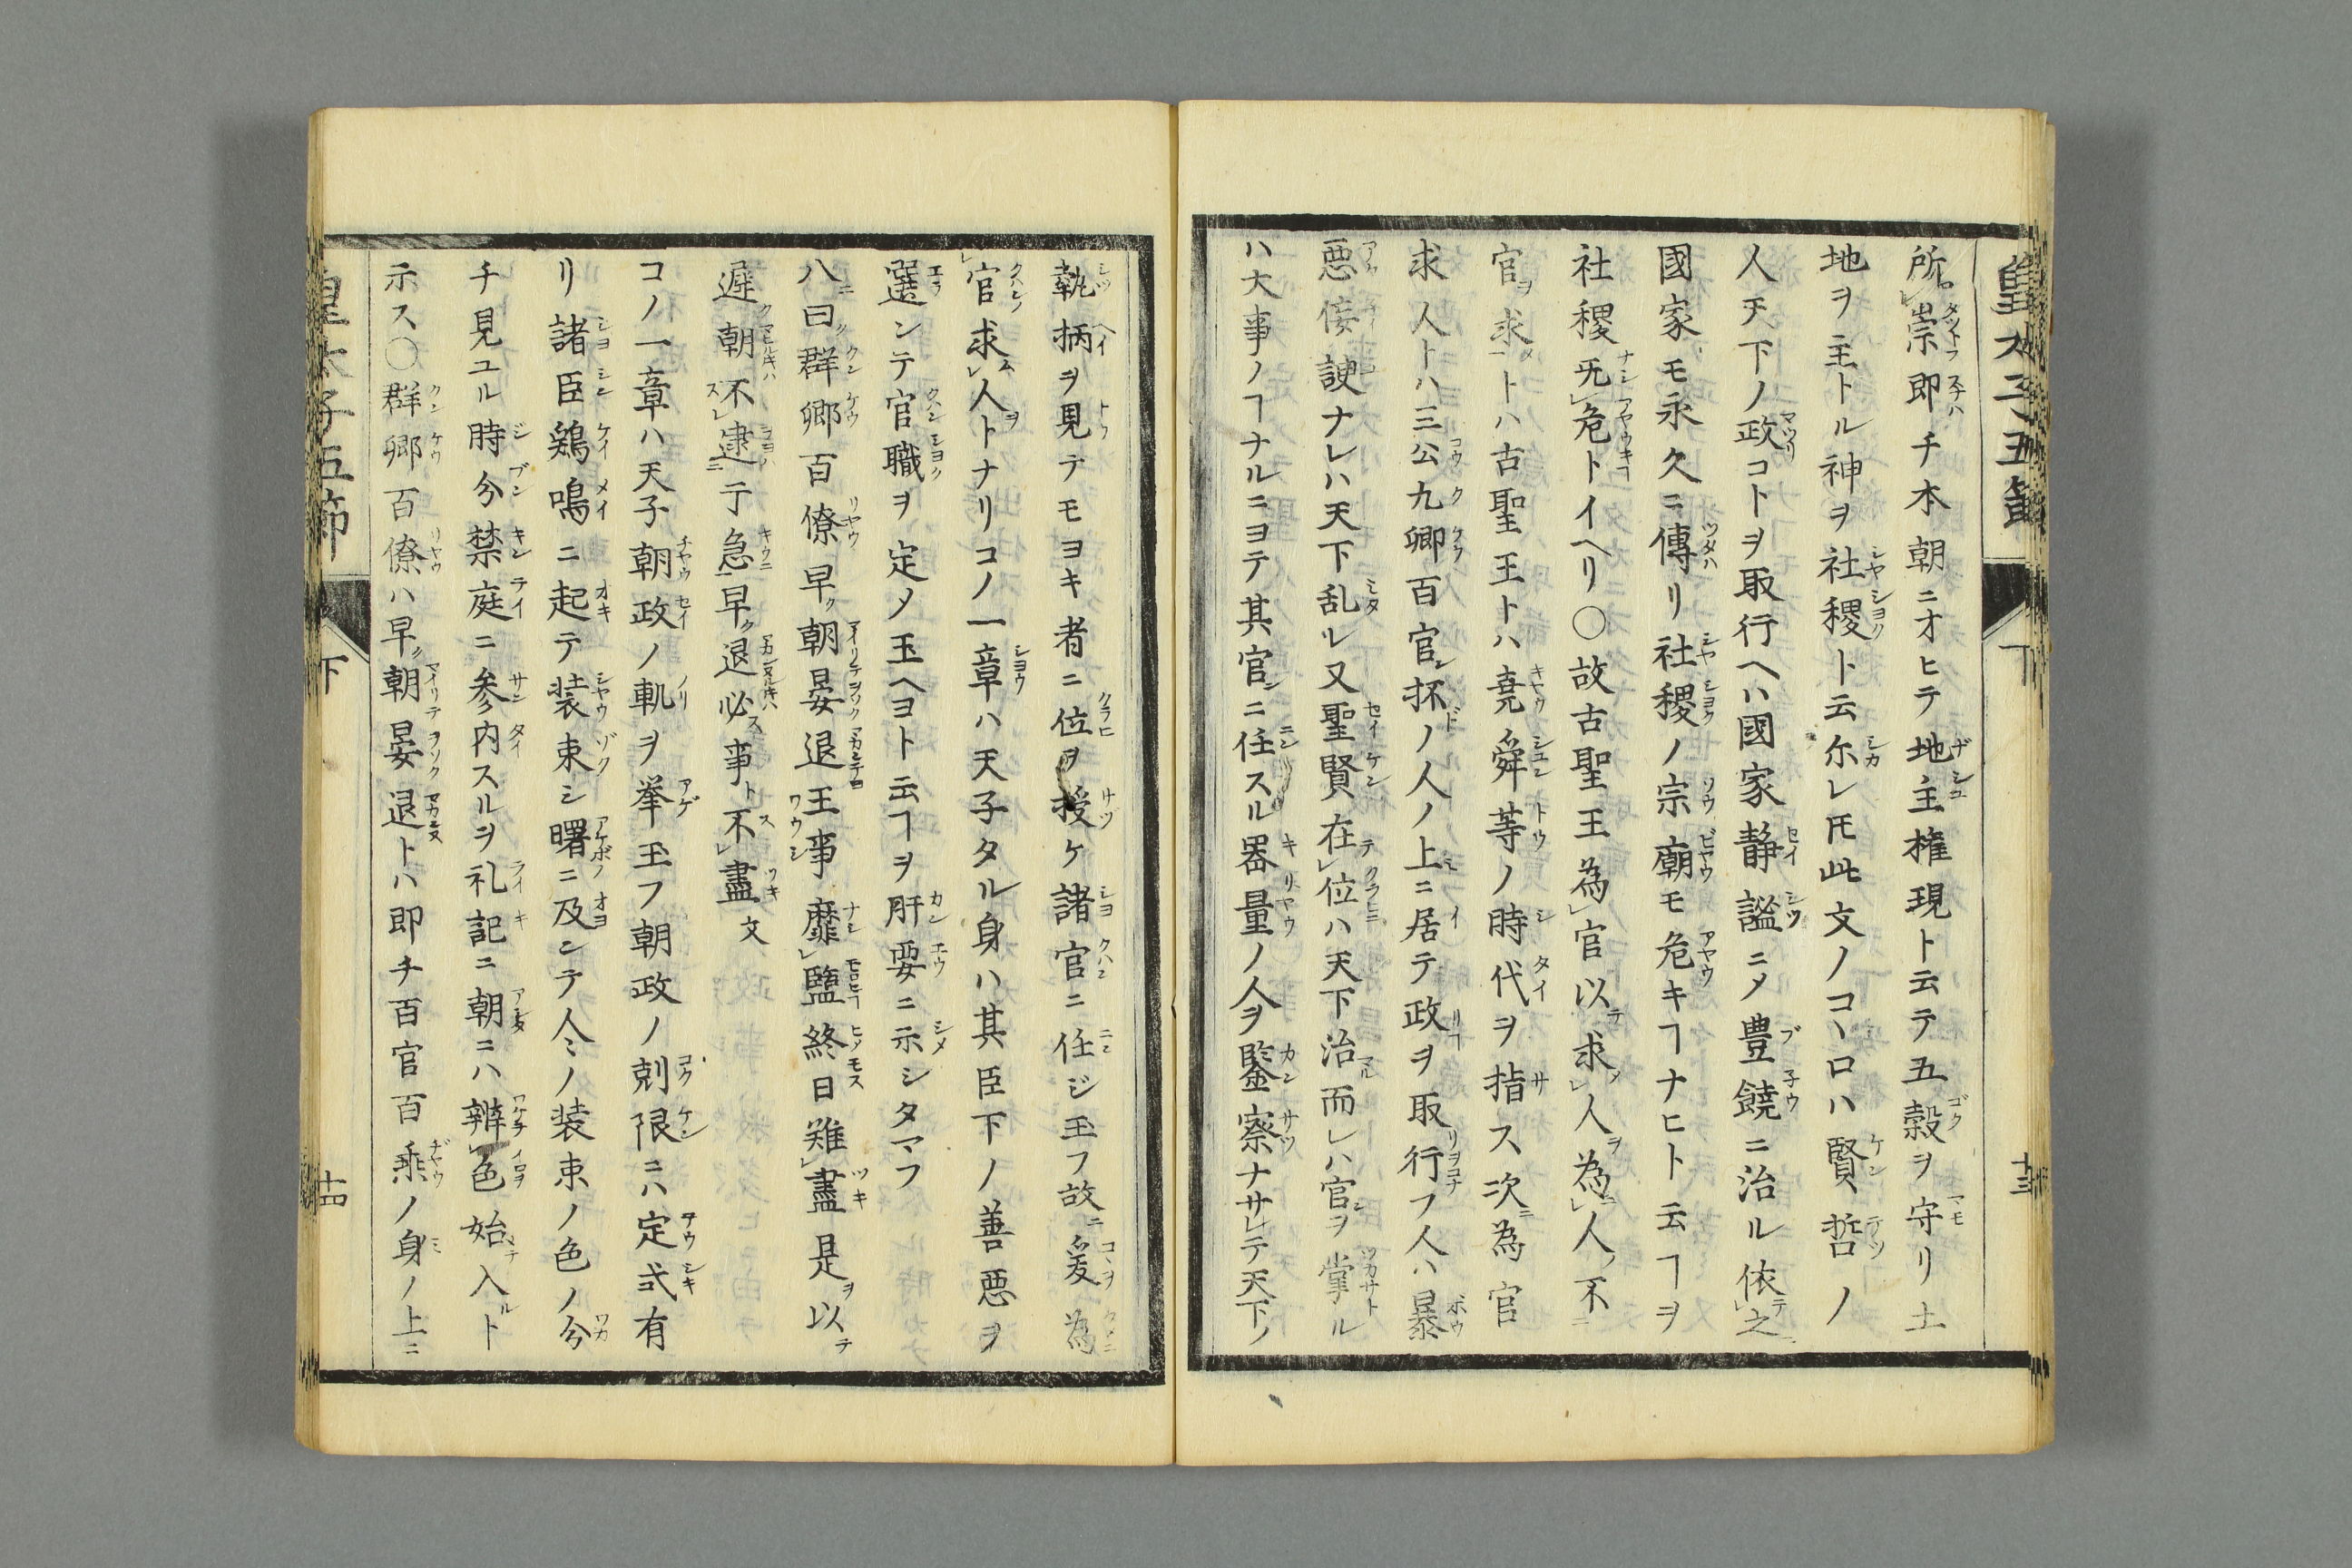 所崇即チ本朝ニオヒテ地主権現ト云テ五穀ヲ守リ土
地ヲ主トル神ヲ社稷ト云尓レ𪜈此文ノコヽロハ賢哲ノ
人天下ノ政コトヲ取行ヘハ國家静謐ニメ豊饒ニ治ル依之
國家モ永久ニ傳リ社稷ノ宗廟モ危キヿナヒト云ヿヲ
社稷旡危トイヘリ〇故古聖王為官以求人為人不
官求トハ古聖王トハ尭舜等ノ時代ヲ指ス次為官
求人トハ三公九卿百官抔ノ人ノ上ニ居テ政ヲ取行フ人ハ暴
悪侫諛ナレハ天下乱ル又聖賢在位ハ天下治而レハ官ヲ掌ル
ハ大事ノヿナルニヨテ其官ニ任スル器量ノ人ヲ鑒察ナサレテ天下ノ
執柄ヲ見テモヨキ者ニ位ヲ授ケ諸官ニ任ジ玉フ故ニ爰為
官求人トナリコノ一章ハ天子タル身ハ其臣下ノ善悪ヲ
選ンテ官職ヲ定メ玉ヘヨト云ヿヲ肝要ニ示シタマフ
八曰群卿百僚早朝晏退王事靡盬終日難盡是以
遅朝不逮于急早退必事不盡文
コノ一章ハ天子朝政ノ軌ヲ挙玉フ朝政ノ剋限ニハ定式有
リ諸臣鶏鳴ニ起テ装束シ曙ニ及ンテ人〻ノ装束ノ色ノ分
チ見ユル時分禁庭ニ参内スルヲ礼記ニ朝ニハ辨色始入ト
示ス〇群卿百僚ハ早朝晏退トハ即チ百官百乗ノ身ノ上ニ
皇太子五節
下
十四